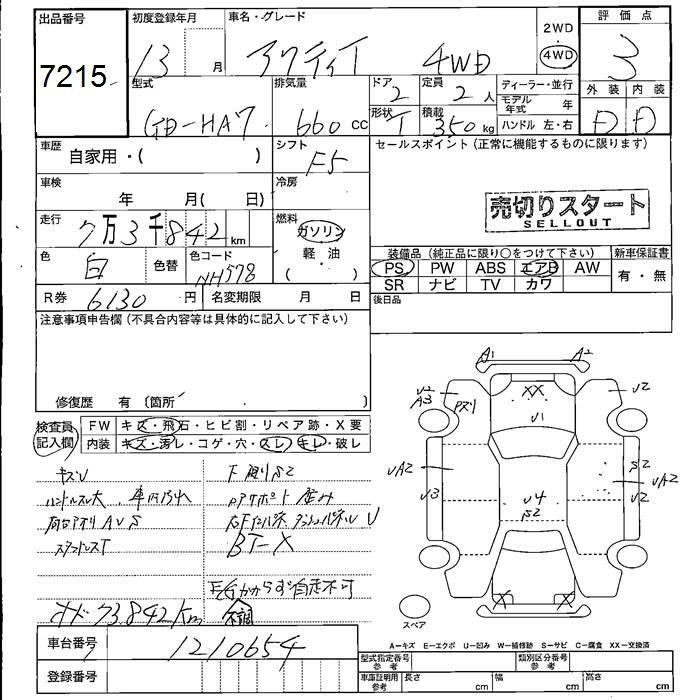 出品番号
7215
初度登録年月
13 月
車名・グレード
アクティT 4WD
2WD
4WD
評価点
3
型式
GD-HA7
排気量
660 cc
ドア 2
形状 T
定員 2 人
積載 350 kg
ディーラー・並行
モデル年式 年
ハンドル 左・右
外装 内装
D D
車歴
自家用・( )
シフト
F5
セールスポイント (正常に機能するものに限ります)
車検
年 月( 日)
冷房
売切りスタート
SELLOUT
走行
7万3千842 km
燃料
ガソリン
軽・油
・( )
色
白
色替
色コード
NH578
装備品 (純正品に限り〇をつけて下さい)
新車保証書
PS PW ABS エアB AW
有・無
SR ナビ TV カワ
R券 6130 円
名変期限 月 日
後日品
注意事項申告欄 (不具合内容等は具体的に記入して下さい)
修復歴 有 〔箇所 〕
検査員
記入欄
FW キズ・飛石・ヒビ割・リペア跡・X要
内装 キズ・汚レ・コゲ・穴・スレ・キレ・破レ
キズU
ハンドルスレ大
車内汚れ
AUS
下廻りS2
U
BT-X
E/Gかからず自走不可
メーター 73,842km
不調
A1 A2
U2
A3
Pズリ
XX
U1
U2
UA2
U3
U4
S2
S2
U2
UA2
X X
スペア
車台番号
1210654
登録番号
A−キズ E−エクボ U−凹み W−補修跡 S−サビ C−腐食 XX−交換済
型式指定番号
参考
類別区分番号
参考
車庫証明用
参考
長さ cm
幅 cm
高さ cm